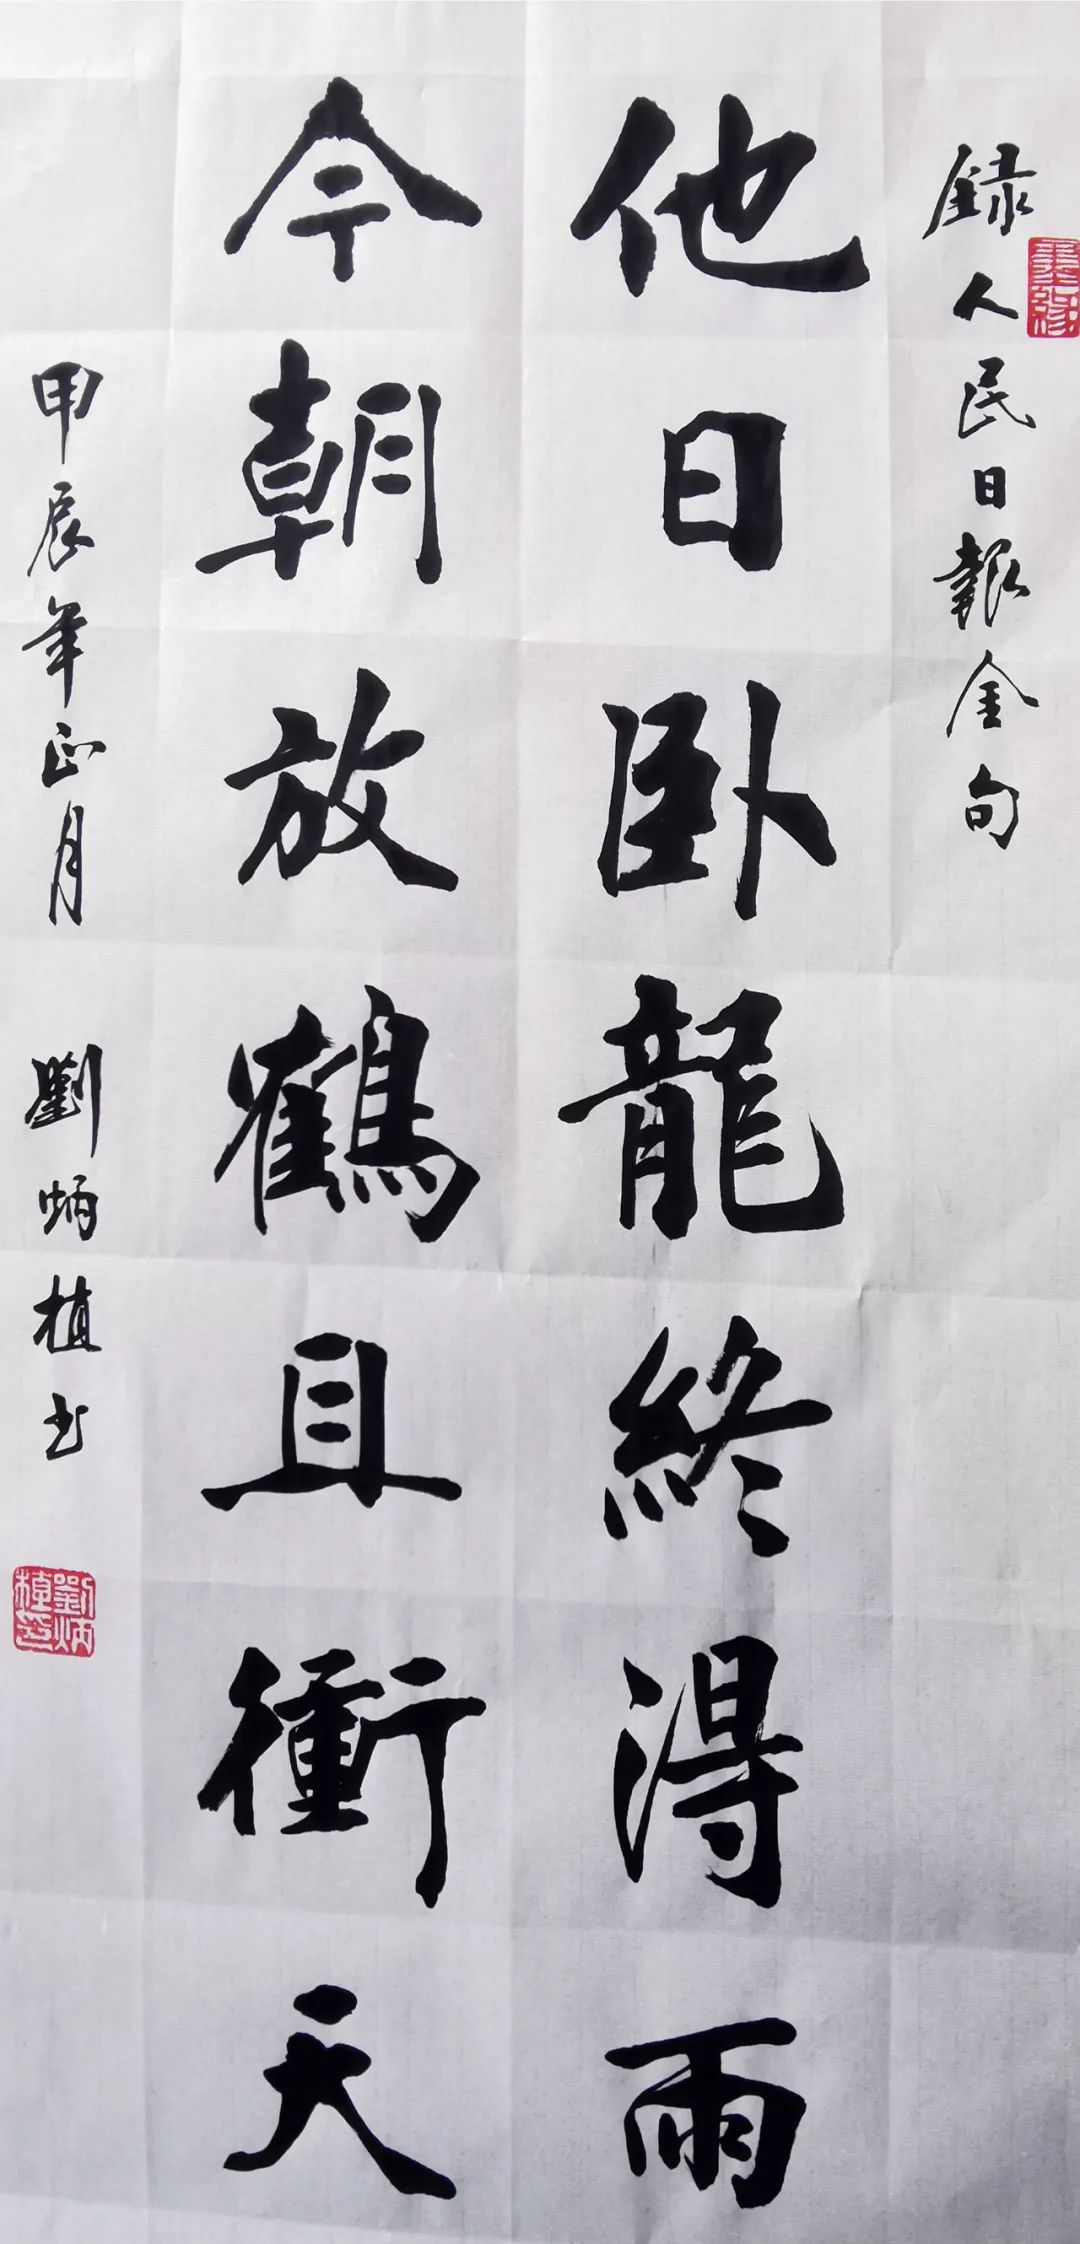 録人民日報金句
他日臥龍終得雨
今朝放鶴且衝天
甲辰年正月 劉炳植書
劉炳植